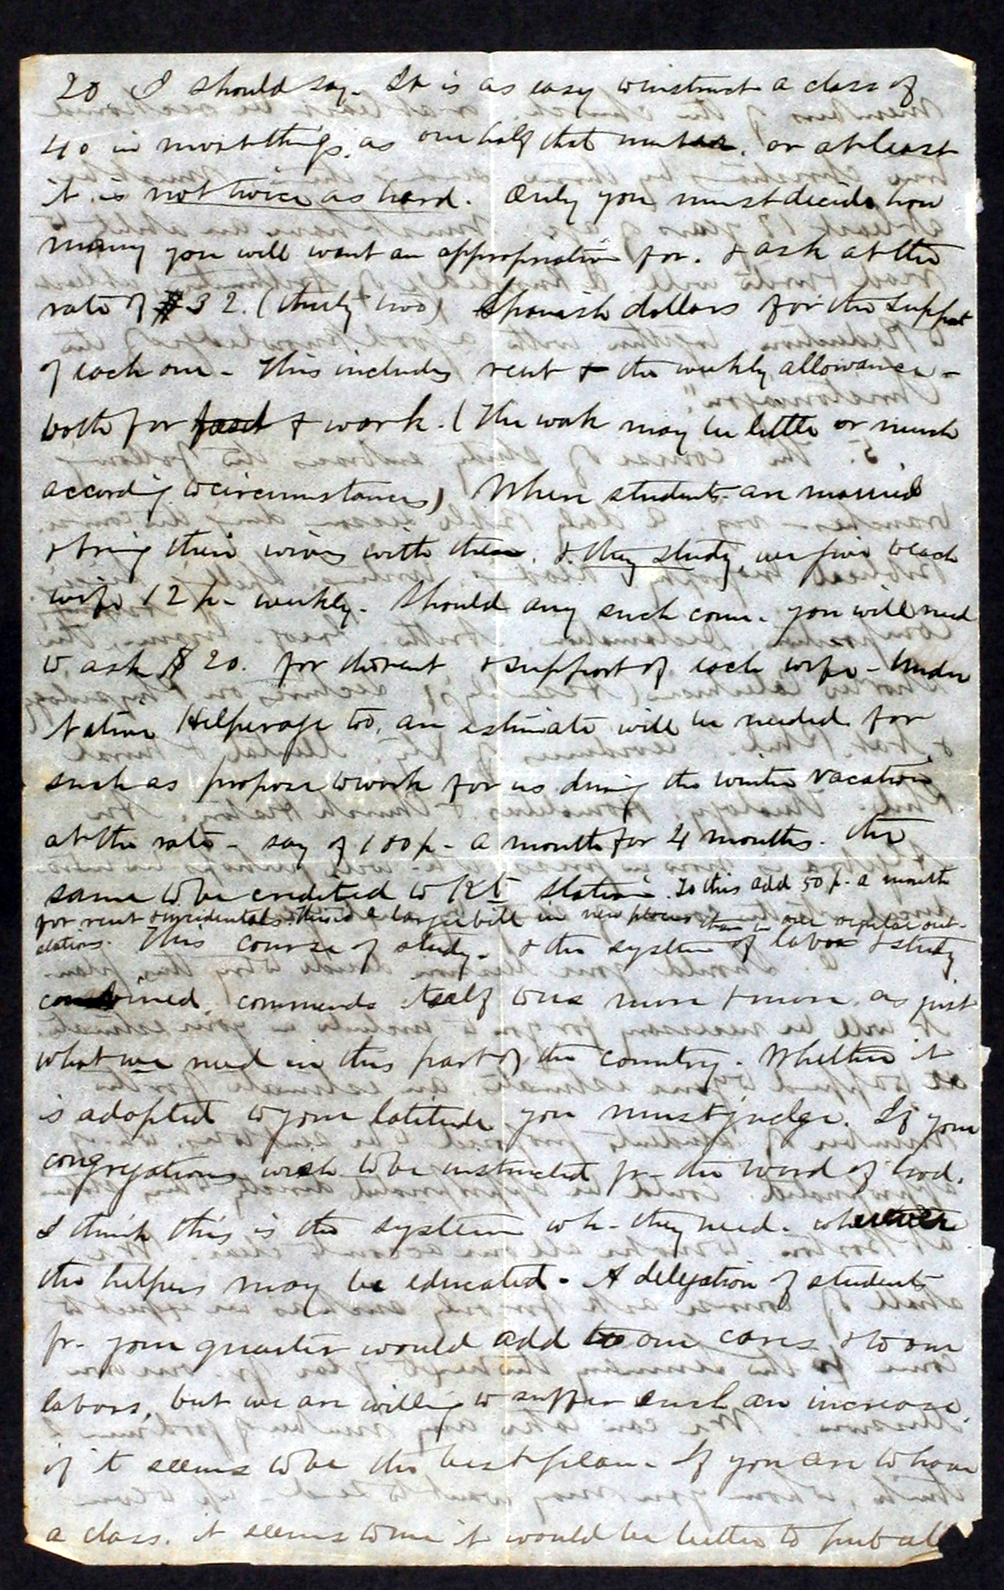 20 I should say. It is as easy to instruct a class of
40 in most things, as one half that number. or at least
it is not twice as hard. Only you must decide how
many you will want an appropriation for. & ask at the
rate of $32. (thirty two) Spanish dollars for the support
of each one - This includes rent & the weekly allowance -
both for food & work. (The work may be little or much
according to circumstances) When students are married
& bring their wives with them, & they study, we give to each
wife 12 p- weekly. Should any such come, you will need
to ask $20. for the rent & support of each wife - Under
Native Helperage too, an estimate will be needed for
such as propose to work for us during the winter vacation
at the rate - say of 100 p- a month for 4 months. the
same to be credited to Kt station. To this add 50 p. a month
for rent & incidentals. This is a larger bill in new places than in our regular out-
stations. This course of study. & the system of labor & study
combined, commends itself to us more & more, as just
what we need in this part of the country. Whether it
is adapted to your latitude you must judge. If your
congregations wish to be instructed fr- the word of God.
I think this is the system wh- they need. wherever
the helpers may be educated. A delegation of students
fr- your quarter would add to our cares & to our
labors, but we are willing to suffer such an increase,
if it seems to be the best plan. If you are to have
a class, it seems to me it would be better to put all